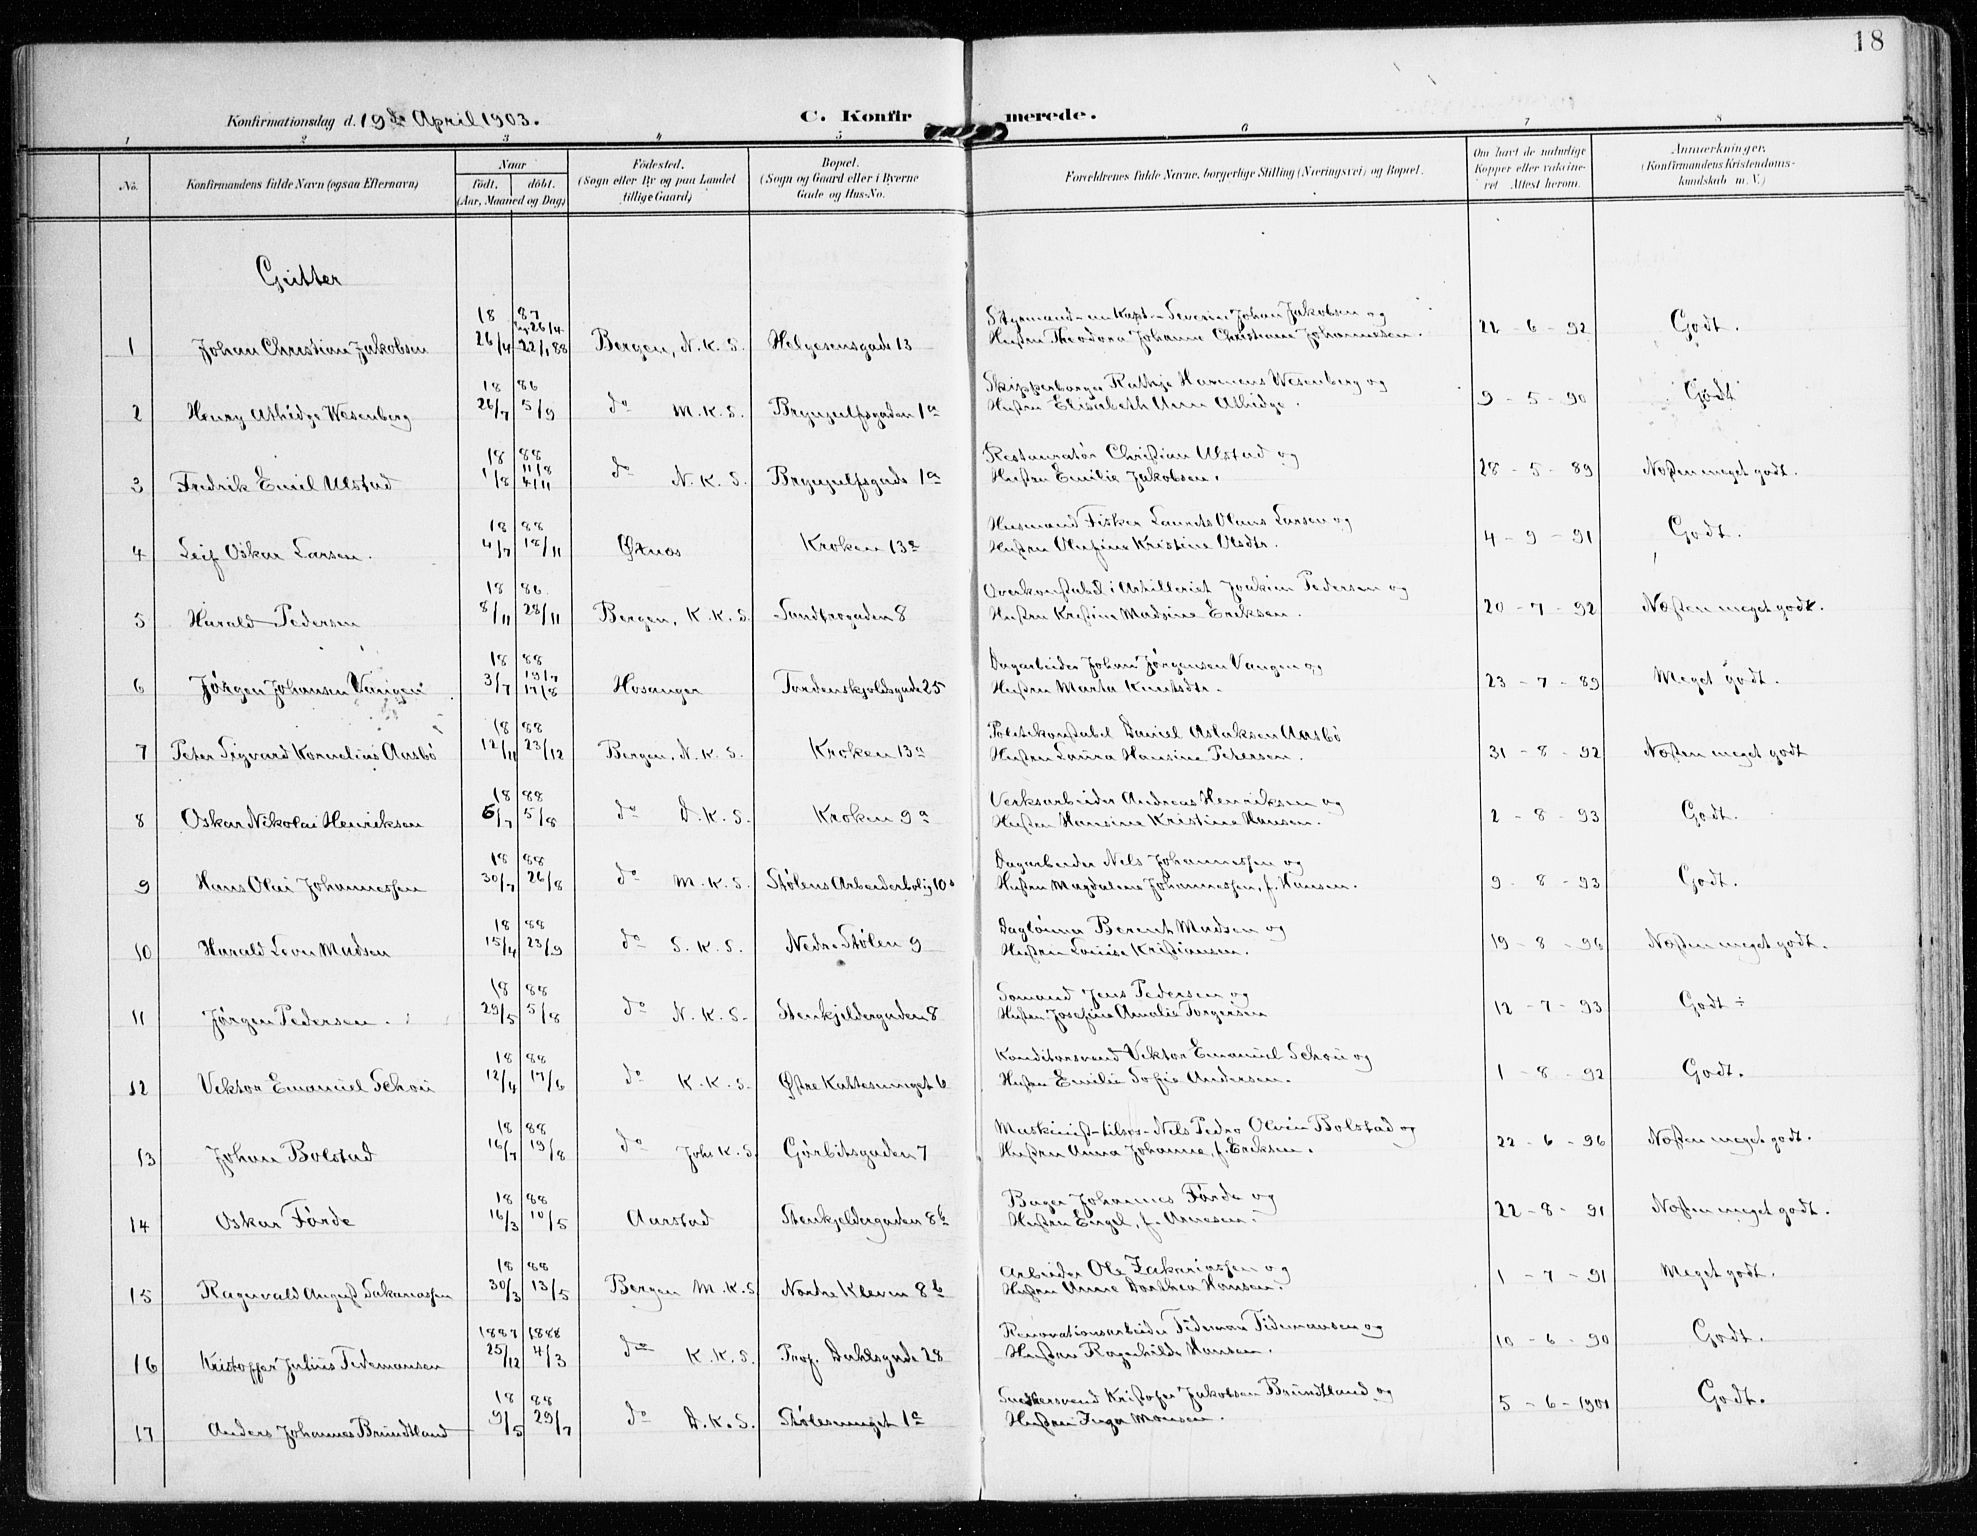 18
Konfirmationsdag d. 19de April 1903.
C. Konfirmerede.
1 2 3 4 5 6 7 8
No.
Konfirmandens fulde Navn (ogsaa Efternavn)
Naar
født. døbt.
(Aar, Maaned og Dag)
Fødested.
(Sogn eller By og paa Landet
tillige Gaard)
Bopæl.
(Sogn og Gaard eller i Byerne
Gade og Hus-No.
Forældrenes fulde Navne, borgerlige Stilling (Næringsvei) og Bopæl.
Om havt de naturlige
Kopper eller vaksine-
ret Attest herom.
Anmærkninger.
(Konfirmandens Kristendoms-
kundskab m. V.)
Gutter
18 87
Styrmand Kapt. Severin Johan Jakobsen og
1 Johan Christian Jakobsen 26/4 22/1 88 Bergen, N.K.S. Helgesensgade 13 Hustru Theodora Johanne Christiane Johannesen. 22-6-92 Godt.
18 86
Skipperborger Rathje Harmens Wesenberg og
2 Henry Athidge Wesenberg 26/7 5/9 do M.K.S. Brynjulfsgaden 1a Hustru Elisabeth Ann Athidge. 9-5-90 Godt
18 88
Restauratør Christian Ulstad og
3 Fredrik Emil Ulstad 1/8 11/8 4/11 do N.K.S. Brynjulfsgade 1a Hustru Emilie Jakobsen. 28-5-89 Næsten meget godt.
18 88
Husmand Fisker Laurits Olaus Larsen og
4 Leif Oskar Larsen. 4/7 18/11 Øxnes Kroken 13a Hustru Olufine Kristine Olsdtr. 4-9-91 Godt.
18 86
Overkonstabel i Artilleriet Joakim Pedersen og
5 Harald Pedersen 8/11 28/11 Bergen, K.K.S. Sandbrogaden 8 Hustru Kristine Madsine Eriksen. 20-7-92 Næsten meget godt.
18 88
Dagarbeider Johan Jørgensen Vangen og
6 Jørgen Johansen Vangen 3/7 19/7 17/8 Hosanger Tordenskjoldsgade 25 Hustru Marta Knutsdtr. 23-7-89 Meget godt.
18 88
Politikonstabel Daniel Aslaksen Aasbø
7 Peter Sigvard Kornelius Aasbø 12/11 23/12 Bergen, N.K.S. Kroken 13a Hustru Laura Hansine Petersen. 31-8-92 Næsten meget godt
18 88
Verksarbeider Andreas Henriksen og
8 Oskar Nikolai Henriksen 6/7 5/8 do D.K.S. Kroken 9a Hustru Hansine Kristine Hansen. 2-8-93 Godt.
18 88
Dagarbeider Nels Johannessen og
9 Hans Olai Johannessen 30/7 26/8 do M.K.S. Stølens Arbeiderbolig 10 Hustru Magdalene Johannessen, f. Hansen. 9-8-93 Godt.
18 88
Dagløner Berent Madsen og
10 Harald Madsen 15/4 23/9 do S.K.S. Nedre Stølen 9 Hustru Louise Kristiansen. 19-8-96 Næsten meget godt.
18 88
Sømand Jens Pedersen og
11 Jørgen Pedersen. 29/5 5/8 do N.K.S. Stenkjeldergaden 8 Hustru Josefine Amalie Torgersen 12-7-93 Godt ÷
18 88
Konditorsvend Viktor Emanuel Schou og
12 Viktor Emanuel Schou 12/4 17/6 do K.K.S. Østre Kattesmuget 6 Hustru Emilie Sofie Andersen. 1-8-92 Godt.
18 88
Maskinist-tilsøs-Nels Pedro Olvin Bolstad og
13 Johan Bolstad 16/7 19/8 do Johs K.S. Gørbitsgaden 7 Hustru Anna Johanne, f. Eriksen. 22-6-96 Næsten meget godt.
18 88
Bager Johannes Førde og
14 Oskar Førde 16/3 10/5 Aarstad Stenkjeldergaden 8b Hustru Engel, f. Arnesen. 22-8-91 Næsten meget godt.
18 88
Arbeider Ole Zakariassen og
15 Ragnvald August Sakariassen 30/3 13/5 Bergen M.K.S. Nordre Kleven 8b Hustru Anne Dorthea Hansen. 1-7-91 Meget godt.
1887 1888
Renovationsarbeider Tideman Tidemansen og
16 Kristoffer Julius Tidemansen 25/12 4/3 do K.K.S. Prof. Dahlsgade 28 Hustru Ragnhilde Hansen. 10-6-90 Godt.
18 88
Snedkersvend Kristofer Jakobsen Brundtland og
17 Anders Johannes Brundtland 9/5 29/7 do D.K.S. Stølesmuget 1a Hustru Inga Monsen. 5-6-1901 Godt.